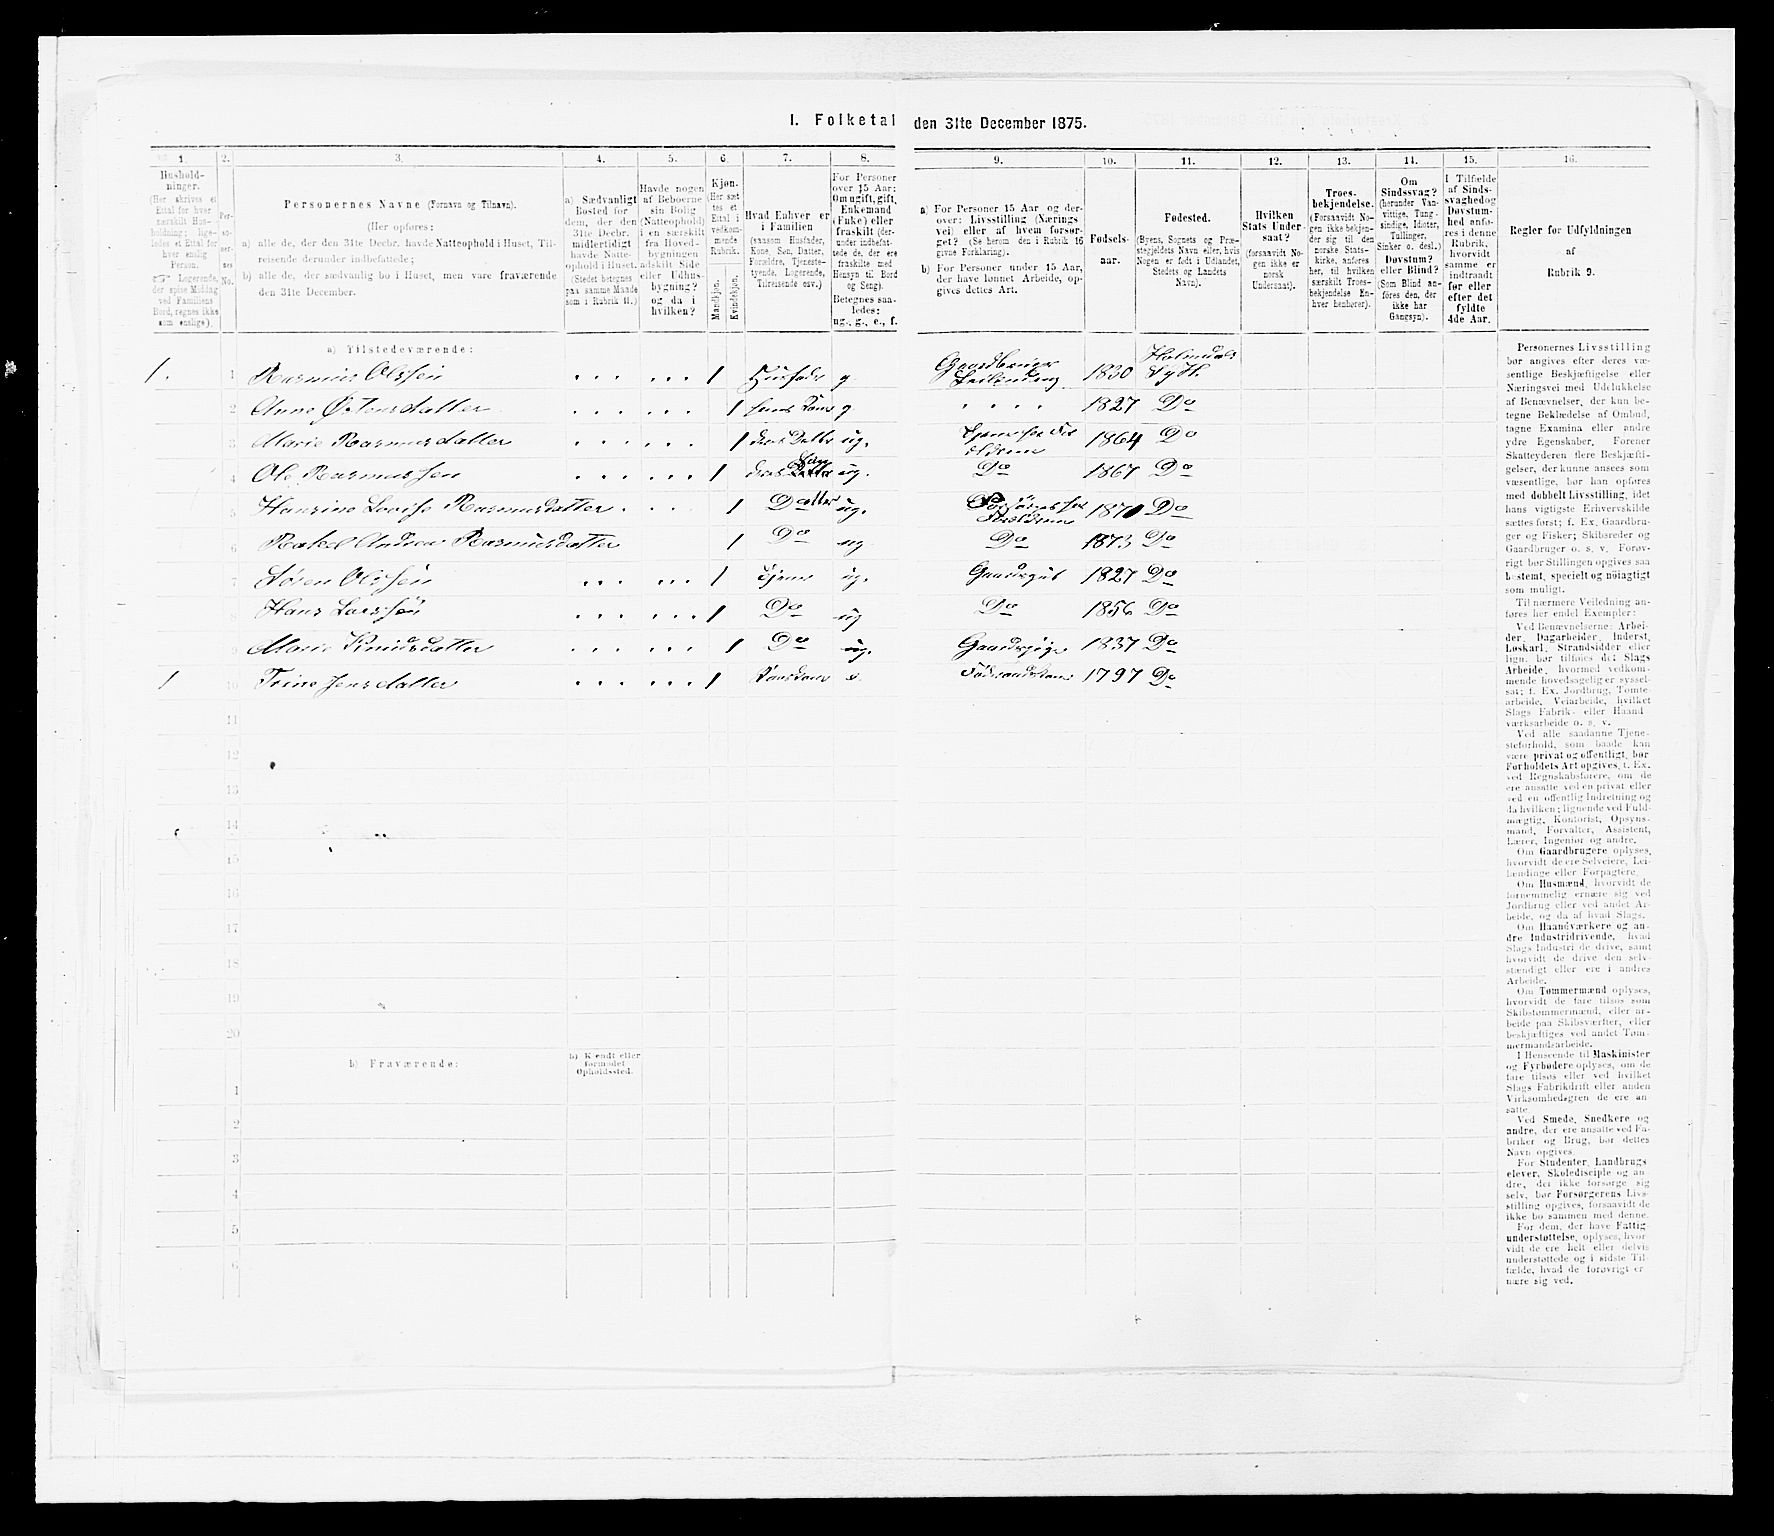 I. Folketal den 31te December 1875.
1. 2. 3. 4. 5. 6. 7. 8. 9. 10. 11. 12. 13. 14. 15. 16.
Hushold-
ninger.
(Her skrives et
Ettal for hver
særskilt Hus-
holdning; lige-
ledes et Ettal for
hver enslig
Person.
☞ Logerende,
der spise Middag
ved Familiens
Bord, regnes ikke
som enslige).
Per-
so-
ner-
nes
No.
Personernes Navne (Fornavn og Tilnavn).
(Her opføres:
a) alle de, der den 31te Decbr. havde Natteophold i Huset, Til-
reisende derunder indbefattede;
b) alle de, der sædvanlig bo i Huset, men vare fraværende
den 31te December.
a) Sædvanligt
Bosted for
dem, der den
31te Decbr.
midlertidigt
havde Natte-
ophold i Huset.
(Stedet betegnes
paa samme Maade
som i Rubrik 11.)
Havde nogen
af Beboerne
sin Bolig
(Natteophold)
i en særskilt
fra Hoved-
bygningen
adskilt Side
eller Udhus-
bygning?
og da i
hvilken?
Kjøn.
(Her sæt-
tes et
Ettal i
vedkom-
mende
Rubrik.
Mandkjøn.
Kvindekjøn.
Hvad Enhver er
i Familien
(saasom Husfader,
Kone, Søn, Datter,
Forældre, Tjeneste-
tyende, Logerende,
Tilreisende osv.)
For Personer
over 15 Aar:
Om ugift, gift,
Enkemand
(Enke) eller
fraskilt (der-
under indbefat-
tede de, der ere
fraskilte med
Hensyn til Bord
og Seng).
Betegnes saa-
ledes:
ug., g., e., f.
a) For Personer 15 Aar og der-
over: Livsstilling (Nærings-
vei) eller af hvem forsør-
get? (Se herom den i Rubrik 16
givne Forklaring).
b) For Personer under 15 Aar,
der have lønnet Arbeide, op-
gives dettes Art.
Fødsels-
aar.
Fødested.
(Byens, Sognets og Præ-
stegjeldets Navn eller, hvis
Nogen er født i Udlandet,
Stedets og Landets
Navn).
Hvilken
Stats Under-
saat?
(forsaavidt No-
gen ikke er
norsk
Undersaat).
Troes-
bekjendelse.
(Forsaavidt No-
gen ikke bekjen-
der sig til den
norske Stats-
kirke, anføres
her, til hvilken
særskilt Troes-
bekjendelse En-
hver henhører).
Om
Sindssvag?
(herunder Van-
vittige, Tung-
sindige, Idioter,
Tullinger,
Sinker o. desl.)
Døvstum?
eller Blind?
(Som Blind an-
føres den, der
ikke har
Gangsyn).
I Tilfælde
af Sinds-
svaghed og
Døvstum-
hed anfø-
res i denne
Rubrik,
hvorvidt
samme er
indtraadt
før eller
efter det
fyldte
4de Aar.
Regler for Udfyldningen
af
Rubrik 9.
a) Tilstedeværende:
1. 1 Rasmus Olssen 1 Husfader g Gaardbruger Leilending 1830 Holmedals
2 Anne Østensdatter 1 hans Kone g 1827 Do
3 Marie Rasmusdatter 1 deres Datter ug. 1864 Do
4 Ole Rasmussen 1 deres Søn ug. Do 1867 Do
5 Hansine Lovise Rasmusdatter 1 Datter ug. Forsørges for Forældrene 1870 Do
6 Rakel Andrea Rasmusdatter 1 Do ug Do 1873 Do
7 Søren Olssen 1 Tjener ug. Gaardsgut 1827 Do
8 Hans Larssøn 1 Do ug Do 1856 Do
9 Marie Knudsdatter 1 Do ug. Gaardspige 1837 Do
1 10 Trine Jensdatter 1 e. Føderaadskone 1797 Do
11
12
13
14
15
16
17
18
19
20
b) Fraværende:
b) Kjendt eller
formodet
Opholdssted.
1
2
3
4
5
6
Personernes Livsstilling
bør angives efter deres væ-
sentlige Beskjæftigelse eller
Næringsvei med Udelukkelse
af Benævnelser, der kun be-
tegne Beklædelse af Ombud,
tagne Examina eller andre
ydre Egenskaber. Forener
Skatteyderen flere Beskjæfti-
gelser, der kunne ansees som
væsentlige, bør han opføres
med dobbelt Livsstilling, idet
hans vigtigste Erhvervskilde
sættes først; f. Ex. Gaardbru-
ger og Fisker; Skibsreder og
Gaardbruger o. s. v. Forøv-
rigt bør Stillingen opgives saa
bestemt, specielt og nøiagtigt
som muligt.
Til nærmere Veiledning an-
føres her endel Exempler:
Ved Benævnelserne: Arbei-
der, Dagarbeider, Inderst,
Løskarl, Strandsidder eller
lign. bør tilføies det Slags
Arbeide, hvormed vedkom-
mende hovedsagelig er syssel-
sat; f. Ex. Jordbrug, Tomte-
arbeide, Veiarbeide, hvilket
Slags Fabrik- eller Haand-
værksarbeide o. s. v.
Ved alle saadanne Tjene-
steforhold, som baade kan
være privat og offentligt, bør
Forholdets Art opgives, t. Ex.
ved Regnskabsførere, om de
ere ansatte ved en privat eller
ved en offentlig Indretning og
da hvilken; lignende ved Fuld-
mægtig, Kontorist, Opsyns-
mand, Forvalter, Assistent,
Lærer, Ingeniør og andre.
Om Gaardbrugere oplyses,
hvorvidt de ere Selveiere, Lei-
lændinge eller Forpagtere.
Om Husmænd, hvorvidt de
fornemmelig ernære sig ved
Jordbrug eller ved andet Ar-
beide, og da af hvad Slags.
Om Haandværkere og an-
dre Industridrivende, hvad
Slags Industri de drive, samt
hvorvidt de drive den selv-
stændigt eller ere i andres
Arbeide.
Om Tømmermænd oplyses,
hvorvidt de fare tilsøs som
Skibstømmermænd, eller ar-
beide paa Skibsværfter, eller
beskjæftiges ved andet Tøm-
mermandsarbeide.
I Henseende til Maskinister
og Fyrbødere oplyses, om de
fare tilsøs eller ved hvilket
Slags Fabrikdrift eller anden
Virksomhedsgren de ere an-
satte.
Ved Smede, Snedkere og
andre, der ere ansatte ved Fa-
briker og Brug, bør dettes
Navn opgives.
For Studenter, Landbrugs-
elever, Skoledisciple og an-
dre, der ikke forsørge sig
selv, bør Forsørgerens Livs-
stilling opgives, forsaavidt de
ikke bo sammen med denne.
For dem, der have Fattig-
understøttelse, oplyses, hvor-
vidt de ere helt eller delvis
understøttede og i sidste Til-
fælde, hvad de forøvrigt er-
nære sig ved.